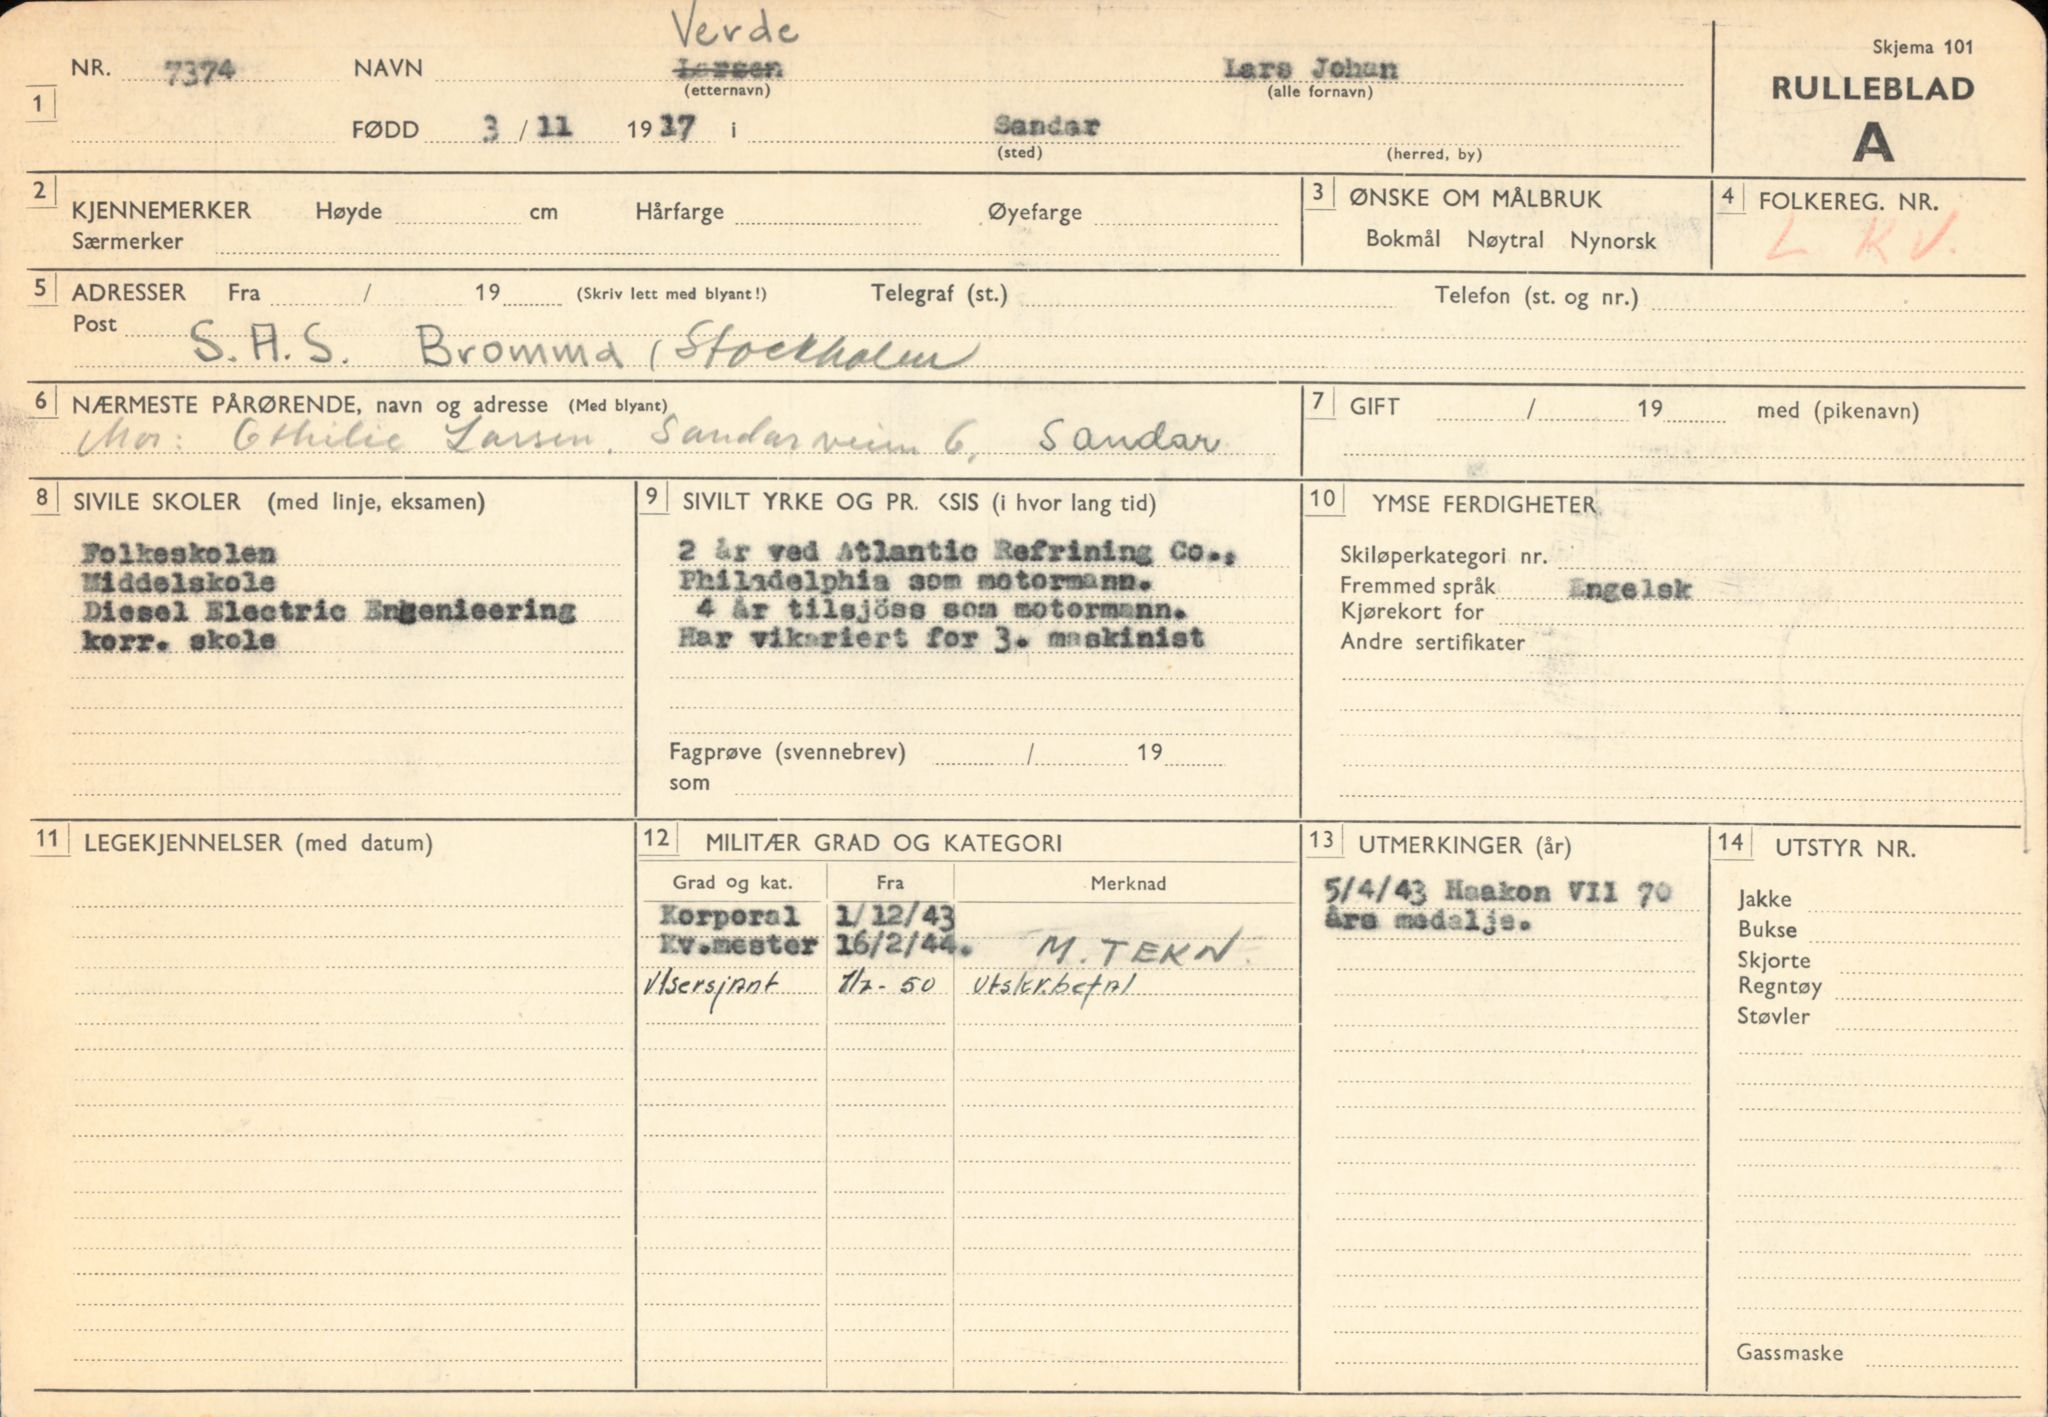 Verde
Skjema 101
NR. 7374 NAVN Larsen Lars Johan
(etternavn) (alle fornavn)
RULLEBLAD
A
1
FØDD 3 / 11 1917 i Sandar
(sted) (herred, by)
2 KJENNEMERKER Høyde cm Hårfarge Øyefarge
Særmerker
3 ØNSKE OM MÅLBRUK
Bokmål Nøytral Nynorsk
4 FOLKEREG. NR.
L K V.
5 ADRESSER Fra / 19 (Skriv lett med blyant!) Telegraf (st.) Telefon (st. og nr.)
Post
S.A.S. Bromma, Stockholm
6 NÆRMESTE PÅRØRENDE, navn og adresse (Med blyant)
Mor: Othilie Larsen, Sandarveien 6, Sandar
7 GIFT / 19 med (pikenavn)
8 SIVILE SKOLER (med linje, eksamen)
Folkeskolen
Middelskole
Diesel Electric Engenieering
korr. skole
9 SIVILT YRKE OG PR. KSIS (i hvor lang tid)
2 år ved Atlantic Refrining Co.,
Philadelphia som motormann.
4 år tilsjöss som motormann.
Har vikariert for 3. maskinist
Fagprøve (svennebrev) / 19
som
10 YMSE FERDIGHETER
Skiløperkategori nr.
Fremmed språk Engelsk
Kjørekort for
Andre sertifikater
11 LEGEKJENNELSER (med datum)
12 MILITÆR GRAD OG KATEGORI
Grad og kat. Fra Merknad
Korporal 1/12/43
Kv.mester 16/2/44. M. TEKN.
Vlsersjant 1/7-50 Utskr.befal
13 UTMERKINGER (år)
5/4/43 Haakon VII 70
års medalje.
14 UTSTYR NR.
Jakke
Bukse
Skjorte
Regntøy
Støvler
Gassmaske